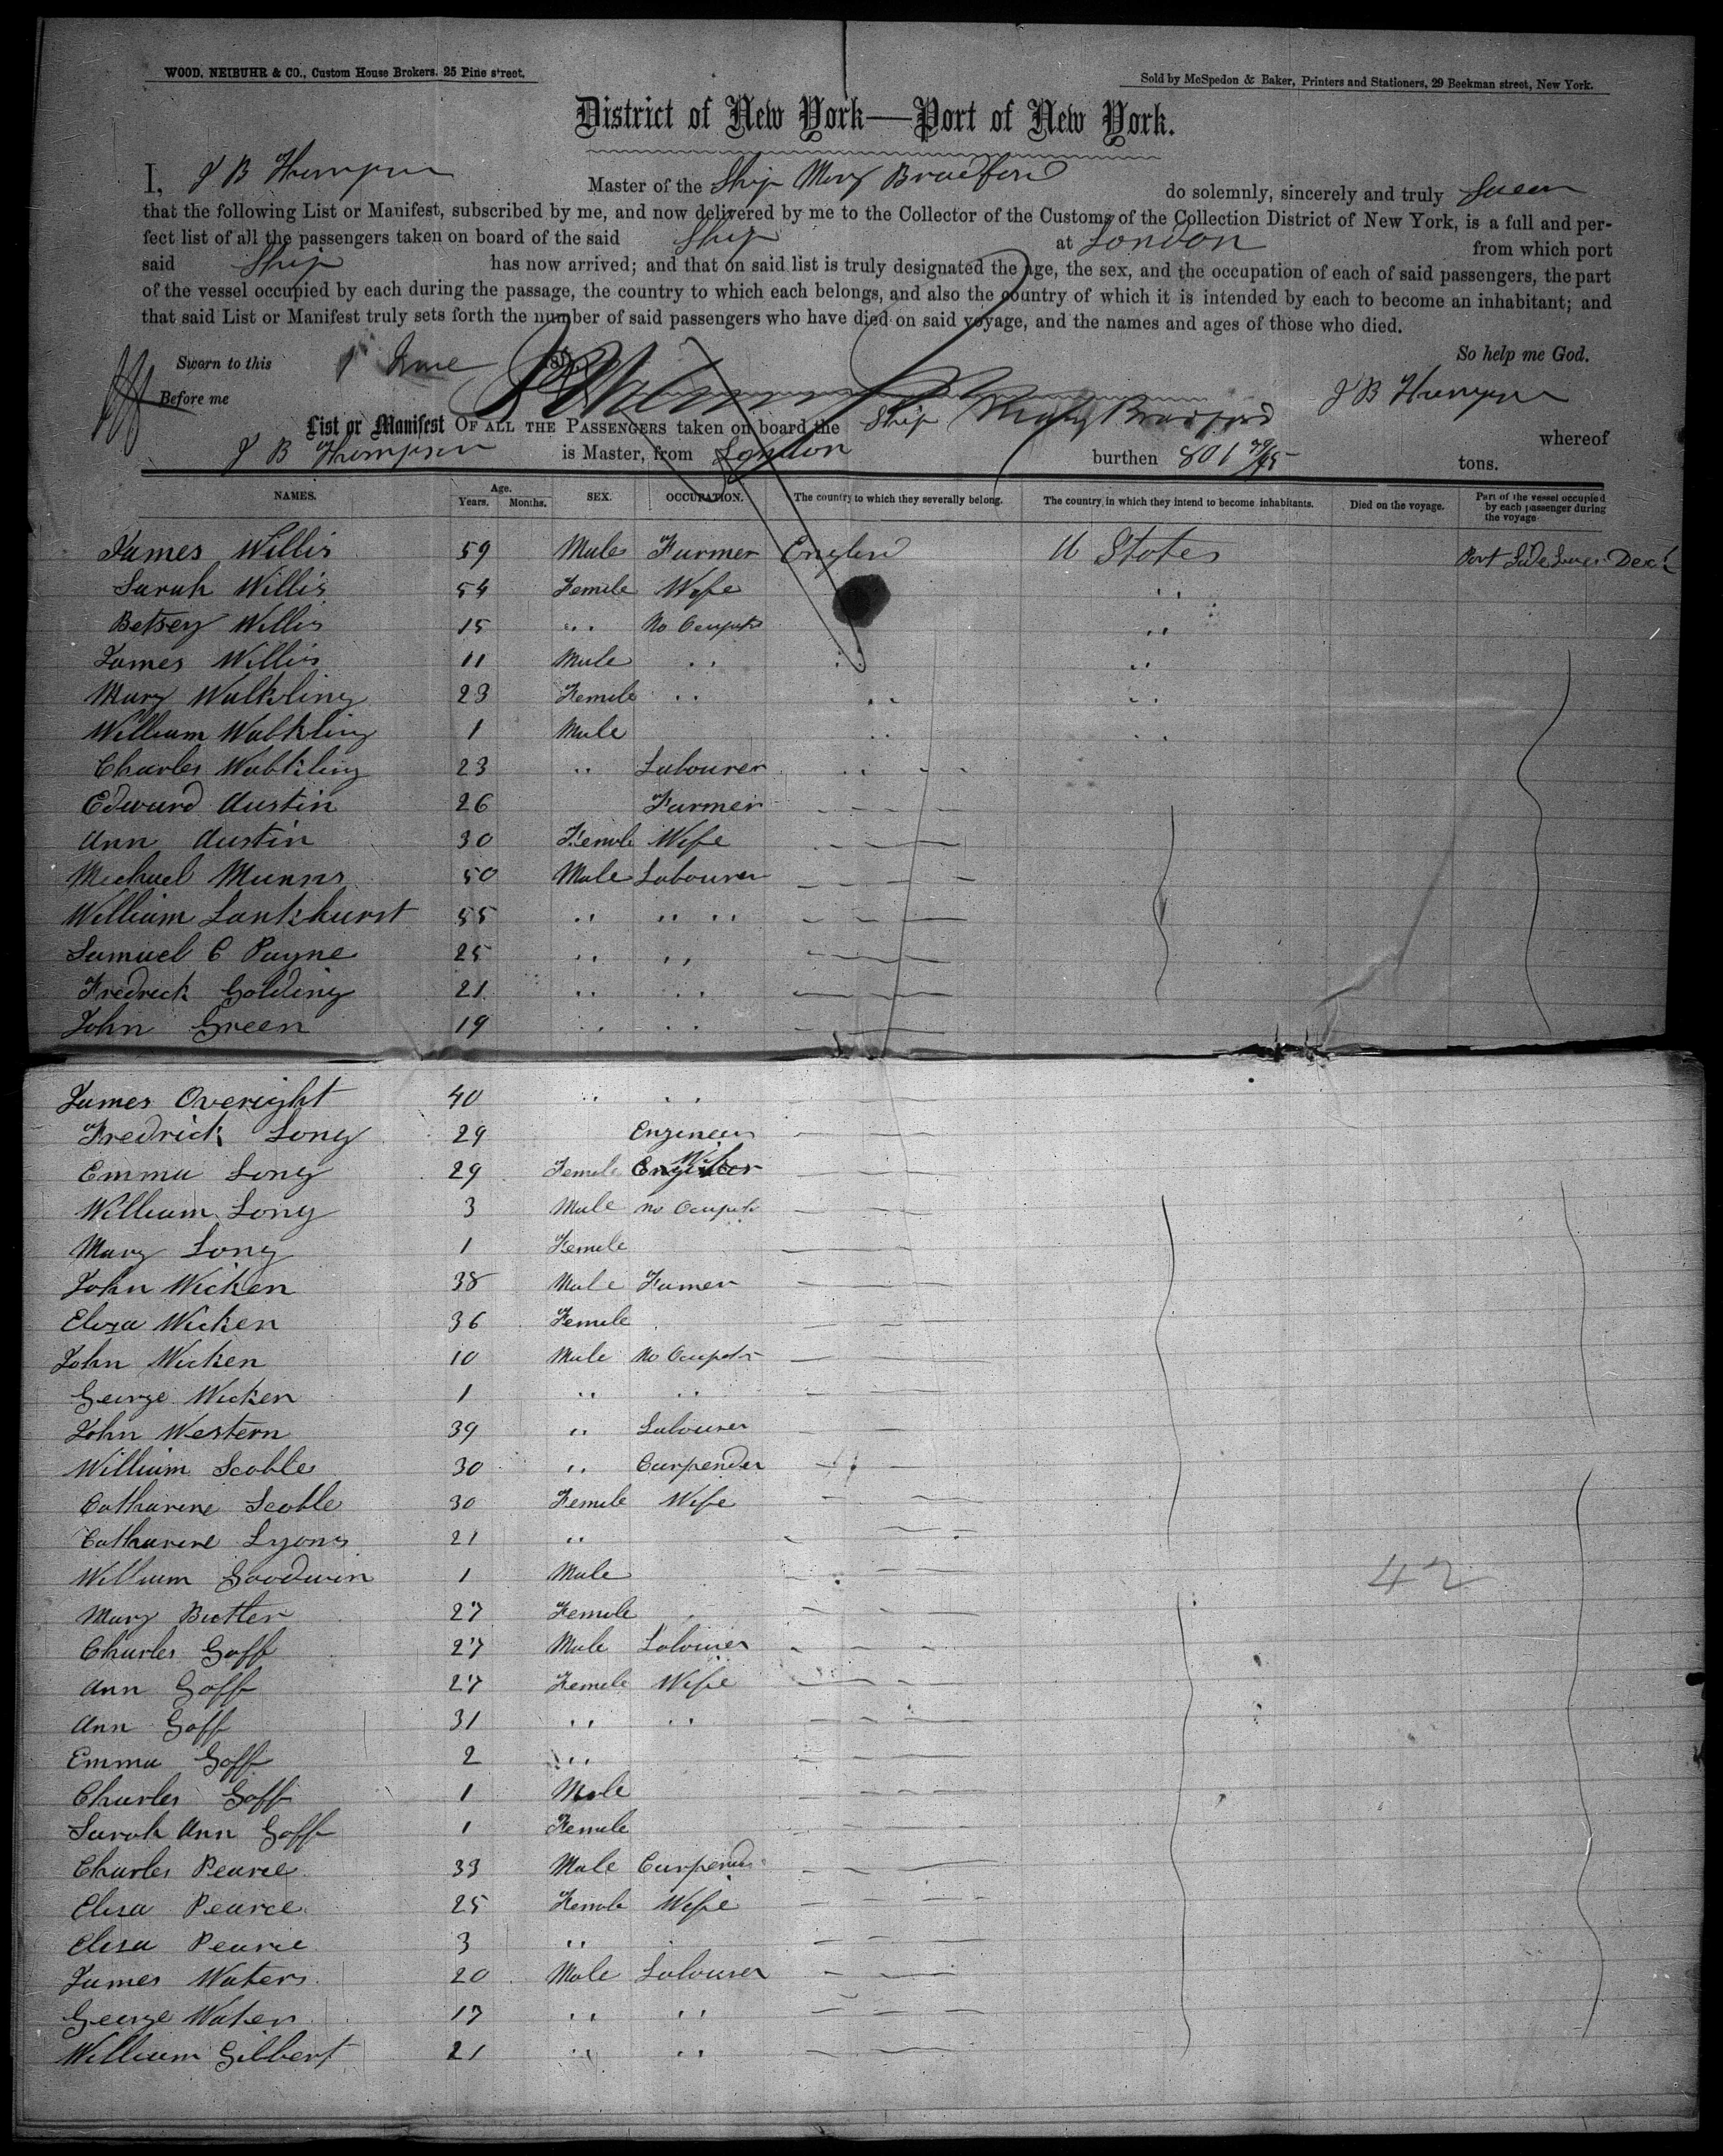 WOOD, NEIBUHR & CO., Custom House Brokers. 25 Pine street.
Sold by McSpedon & Baker, Printers and Stationers, 29 Beekman street, New York.
District of New York—Port of New York.
I, J B Thompson Master of the Ship Mary Bradford do solemnly, sincerely and truly Swear
that the following List or Manifest, subscribed by me, and now delivered by me to the Collector of the Customs of the Collection District of New York, is a full and per-
fect list of all the passengers taken on board of the said Ship at London from which port
said Ship has now arrived; and that on said list is truly designated the age, the sex, and the occupation of each of said passengers, the part
of the vessel occupied by each during the passage, the country to which each belongs, and also the country of which it is intended by each to become an inhabitant; and
that said List or Manifest truly sets forth the number of said passengers who have died on said voyage, and the names and ages of those who died.
So help me God.
Sworn to this 1 June 185
Before me
J B Thompson
List or Manifest OF ALL THE PASSENGERS taken on board the Ship Mary Bradford whereof
J B Thompson is Master, from London burthen 801 79/95 tons.
NAMES. Age. Years. Months. SEX. OCCUPATION. The country to which they severally belong. The country in which they intend to become inhabitants. Died on the voyage. Part of the vessel occupied by each passenger during the voyage
James Willis 59 Male Farmer England U States Port Side Lower Deck
Sarah Willis 54 Female Wife "
Betsey Willis 15 " No Ocupat "
James Willis 11 Male " " "
Mary Walkling 23 Female " " "
William Walkling 1 Male " "
Charles Walkling 23 " Labourer "
Edward Austin 26 Farmer
Ann Austin 30 Female Wife
Michael Munns 50 Male Labourer
William Lankhurst 55 " " "
Samuel C Payne 25 " "
Fredrick Golding 21 " "
John Green 19 " "
James Overight 40 " "
Fredrick Long 29 Engineer
Emma Long 29 Female Wife
William Long 3 Male No Ocupat
Mary Long 1 Female
John Wicken 38 Male Famer
Eliza Wicken 36 Female
John Wicken 10 Male No Ocupat
George Wicken 1 " "
John Western 39 " Labourer
William Scoble 30 " Carpender
Catharine Scoble 30 Female Wife
Catharine Lyons 21 "
William Goodwin 1 Male 42
Mary Butler 27 Female
Charles Goff 27 Male Labourer
Ann Goff 27 Female Wife
Ann Goff 31 " "
Emma Goff 2 "
Charles Goff 1 Male
Sarah Ann Goff 1 Female
Charles Pearce 33 Male Carpender
Elisa Pearce 25 Female Wife
Elisa Pearce 3 "
James Waters 20 Male Labourer
George Waters 17 " "
William Gilbert 21 " "